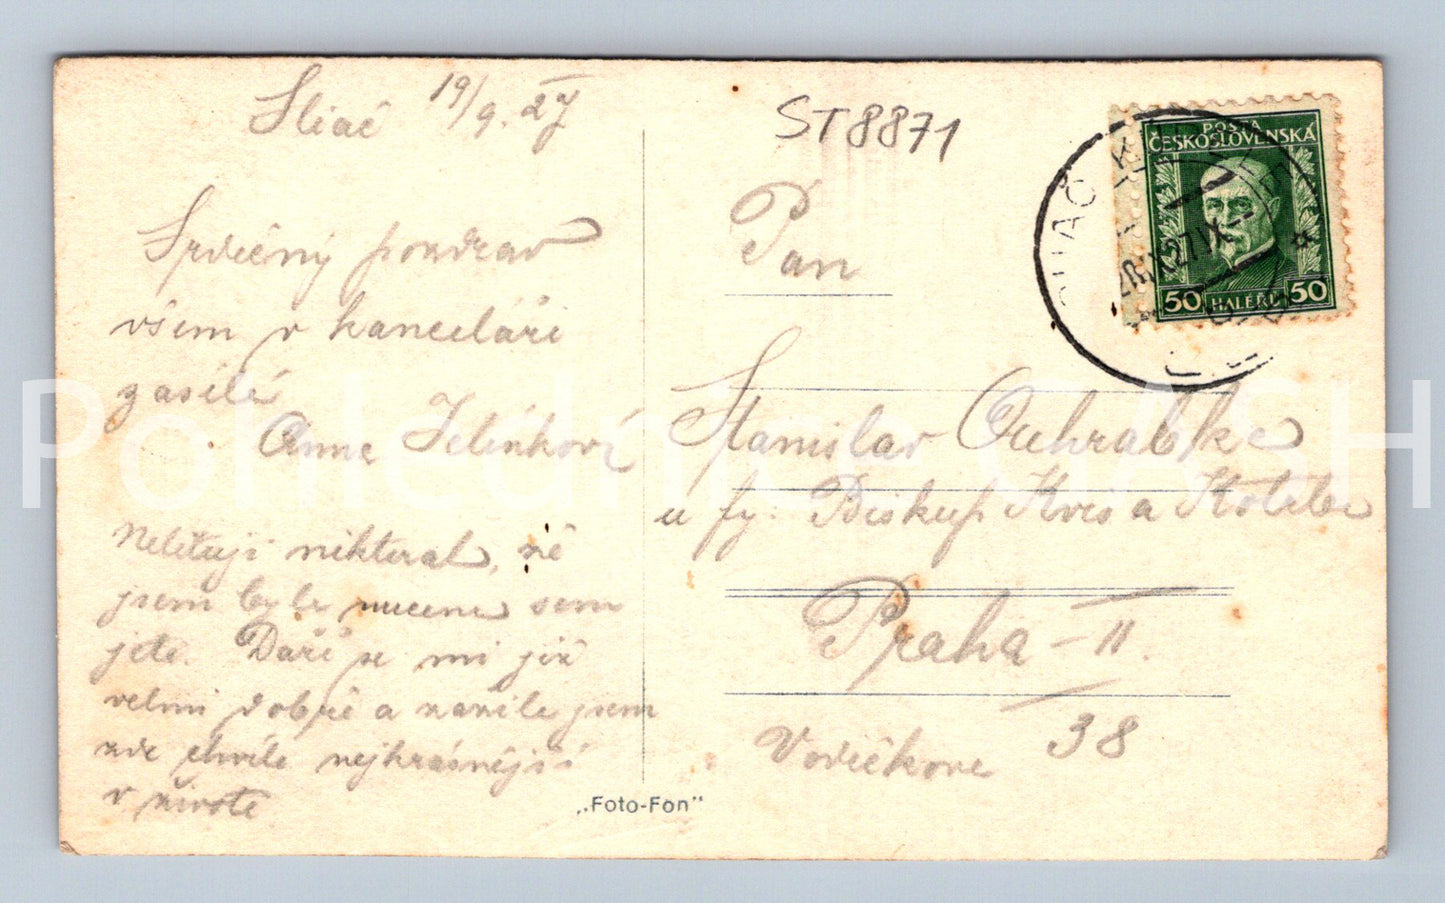 Sliač 19/9. 27
Srdečný pozdrav
všem v kanceláři
zasílá
Anna Jelínková
Nelituji nikterak, že
jsem byla nucena sem
jeti. Daří se mi již
velmi dobře a zažila jsem
zde chvíle nejkrásnější
v životě
ST8871
Pan
Stanislav
u fy. Biskup Kvis a Kotrba
Praha - II.
Vodičkova 38
POŠTA
ČESKOSLOVENSKÁ
50 HALÉŘŮ 50
SLIAČ
27.IX
„Foto-Fon"
Pohlednice GASH